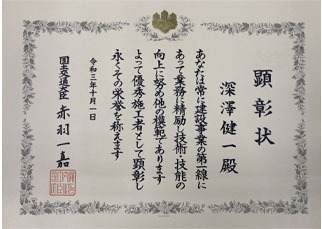 顕彰状
深澤健一殿
あなたは常に建設事業の第一線に
あって業務に精励し技術・技能の
向上に努め他の模範であります
よって優秀施工者として顕彰し
永くその栄誉を称えます
令和三年十月一日
国土交通大臣 赤羽一嘉